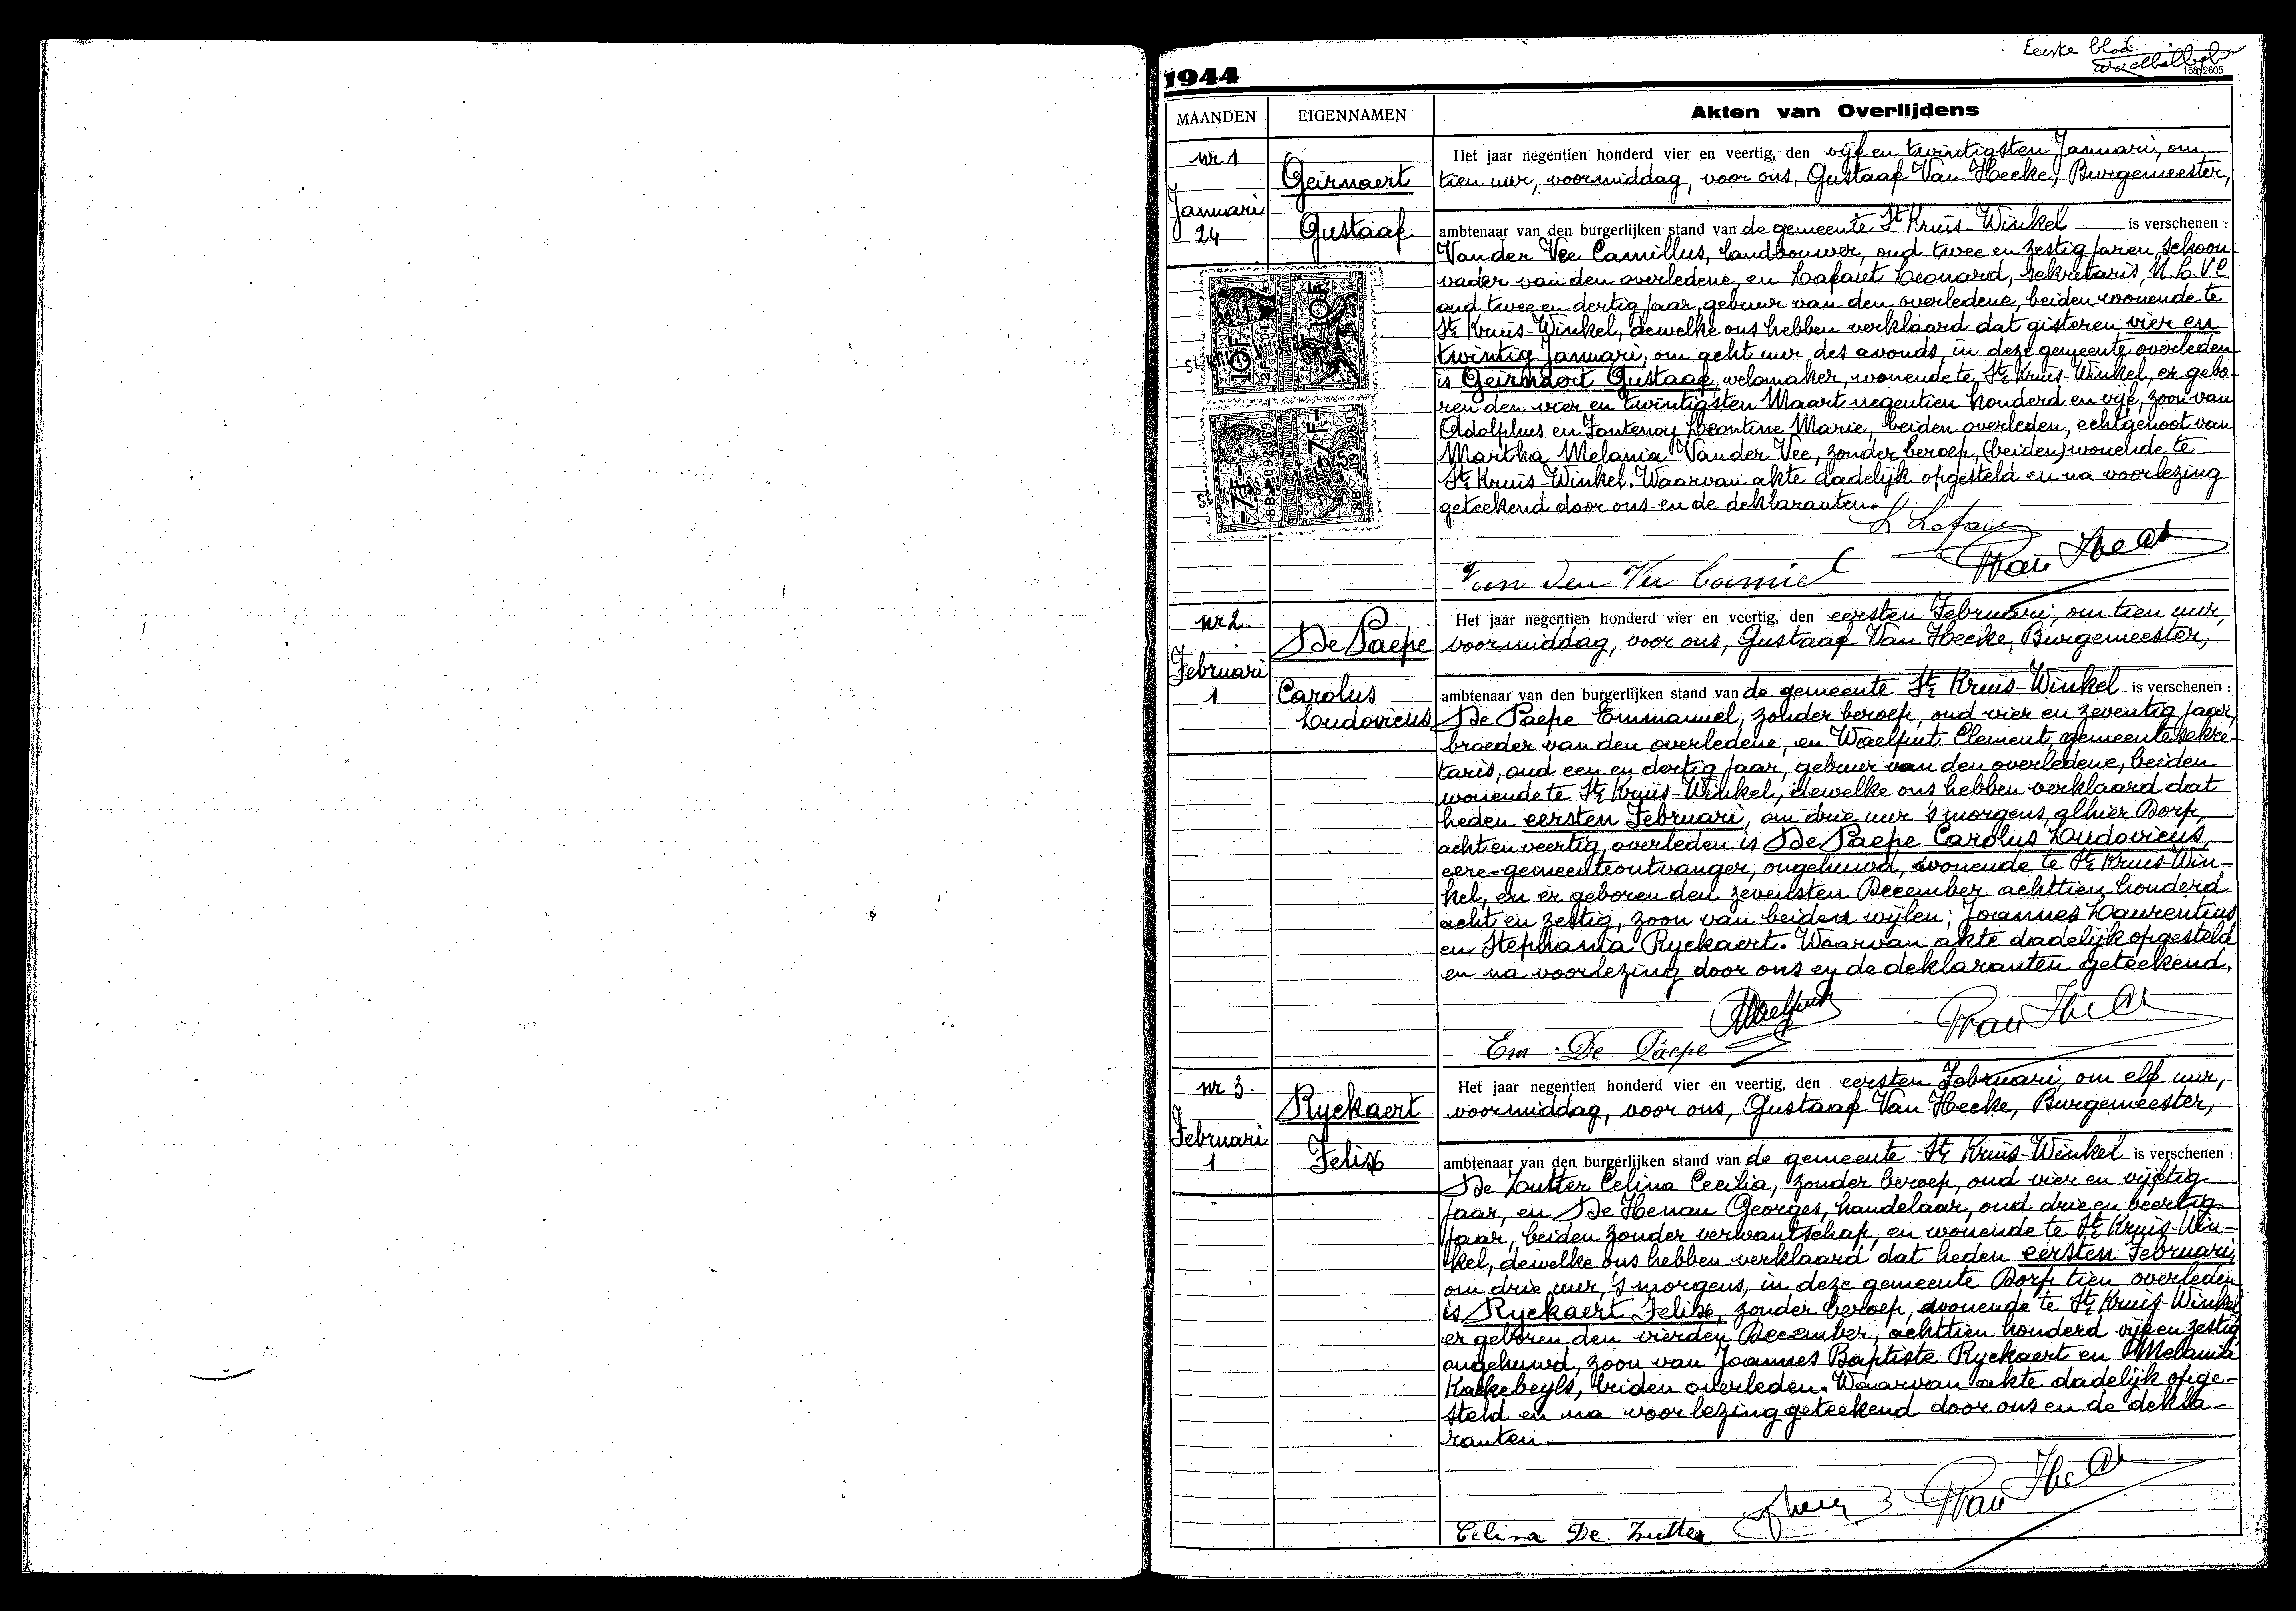 Eerste blad.
169/2605
1944
MAANDEN
EIGENNAMEN
Akten van Overlijdens
nr 1
Januari
24
Geirnaert
Gustaaf
Het jaar negentien honderd vier en veertig, den vijf en twintigsten Januari, om
tien uur, voormiddag, voor ons, Gustaaf Van Hecke, Burgemeester,
ambtenaar van den burgerlijken stand van de gemeente St Kruis-Winkel is verschenen :
Van der Vee Camillus, landbouwer, oud twee en zestig jaren, schoon-
vader van den overledene, en Lafaut Leonard, sekretaris, N.L.V.C.
oud twee en dertig jaar, gebuur van den overledene, beiden wonende te
St Kruis-Winkel, dewelke ons hebben verklaard dat gisteren vier en
twintig Januari, om acht uur des avonds, in deze gemeente overleden
is Geirnaert Gustaaf, velomaker, wonende te St Kruis-Winkel, er gebo-
ren den vier en twintigsten Maart negentien honderd en vijf, zoon van
Adolphus en Fontenoy Leontine Marie, beiden overleden, echtgenoot van
Martha Melania Van der Vee, zonder beroep, (beiden) wonende te
St Kruis-Winkel. Waarvan akte dadelijk opgesteld en na voorlezing
geteekend door ons en de deklaranten.
10F
10F
-7F-
-7F-
8B 092369
8B 092369
L Lafaut
Van der Vee Camiel
nr 2.
Februari
1
De Paepe
Carolus
Ludovicus
Het jaar negentien honderd vier en veertig, den eersten Februari, om tien uur,
voormiddag, voor ons, Gustaaf Van Hecke, Burgemeester,
ambtenaar van den burgerlijken stand van de gemeente St Kruis-Winkel is verschenen :
De Paepe Emmanuel, zonder beroep, oud vier en zeventig jaar,
broeder van den overledene, en Waelput Clement, gemeentesekre-
taris, oud een en dertig jaar, gebuur van den overledene, beiden
wonende te St Kruis-Winkel, dewelke ons hebben verklaard dat
heden eersten Februari, om drie uur 's morgens, alhier Dorp,
acht en veertig overleden is De Paepe Carolus Ludovicus,
eere-gemeenteontvanger, ongehuwd, wonende te St Kruis-Win-
kel, en er geboren den zevensten December achttien honderd
acht en zestig, zoon van beiden wijlen: Joannes Laurentius
en Stephania Ryckaert. Waarvan akte dadelijk opgesteld
en na voorlezing door ons en de deklaranten geteekend.
Waelput
Em. De Paepe
nr 3.
Februari
1
Ryckaert
Felix
Het jaar negentien honderd vier en veertig, den eersten Februari, om elf uur,
voormiddag, voor ons, Gustaaf Van Hecke, Burgemeester,
ambtenaar van den burgerlijken stand van de gemeente St Kruis-Winkel is verschenen :
De Zutter Celina Cecilia, zonder beroep, oud vier en vijftig
jaar, en De Henau Georges, handelaar, oud drie en veertig
jaar, beiden zonder verwantschap, en wonende te St Kruis-Win-
kel, dewelke ons hebben verklaard dat heden eersten Februari,
om drie uur, 's morgens, in deze gemeente Dorp tien overleden
is Ryckaert Felix, zonder beroep, wonende te St Kruis-Winkel
er geboren den vierden December, achttien honderd vijf en zestig
ongehuwd, zoon van Joannes Baptiste Ryckaert en Melania
Kackebeyls, beiden overleden. Waarvan akte dadelijk opge-
steld en na voorlezing geteekend door ons en de dekla-
ranten.
Celina De Zutter